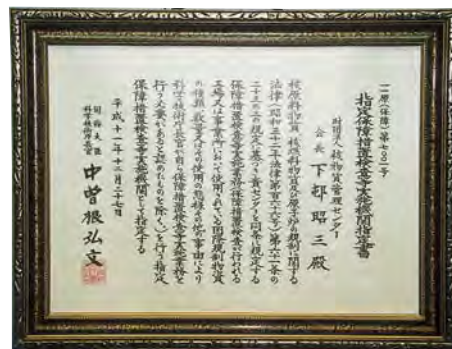 一一原(保障)第七〇一号
指定保障措置検査等実施機関指定書
財団法人核物質管理センター
会長 下邨昭三殿
核原料物質、核燃料物質及び原子炉の規制に関する
法律(昭和三十二年法律第百六十六号)第六十一条の
二十三の二の規定に基づき貴センターを同条に規定する
保障措置検査等実施業務(保障措置検査が行われる
工場又は事業所において使用されている国際規制物資
の種類、数量又はその使用の態様その他の事由により
科学技術庁長官が自ら保障措置検査等実施業務を
行う必要があると認めるものを除く。)を行う指定
保障措置検査等実施機関として指定する
平成十一年十二月二十七日
国務大臣
科学技術庁長官
中曽根弘文